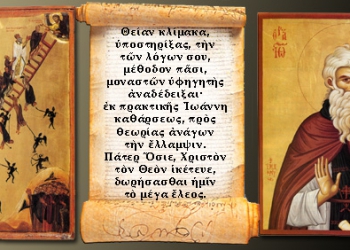 Θείαν κλίμακα,
ὑποστηρίξας, τὴν
τῶν λόγων σου,
μέθοδον πᾶσι,
μοναστῶν ὑφηγητὴς
ἀναδέδειξαι·
ἐκ πρακτικῆς Ἰωάννη
καθάρσεως, πρὸς
θεωρίας ἀνάγων
τὴν ἔλλαμψιν.
Πάτερ Ὅσιε, Χριστὸν
τὸν Θεὸν ἱκέτευε,
δωρήσασθαι ἡμῖν
τὸ μέγα ἔλεος.